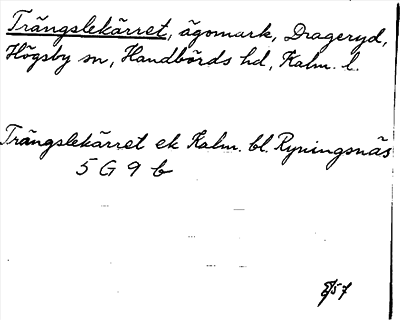 Trängslekärret, ägomark, Drageryd,
Högsby sn, Handbörds hd, Kalm. l.
Trängslekärret ek Kalm. bl. Ryningsnäs
5 G 9 b